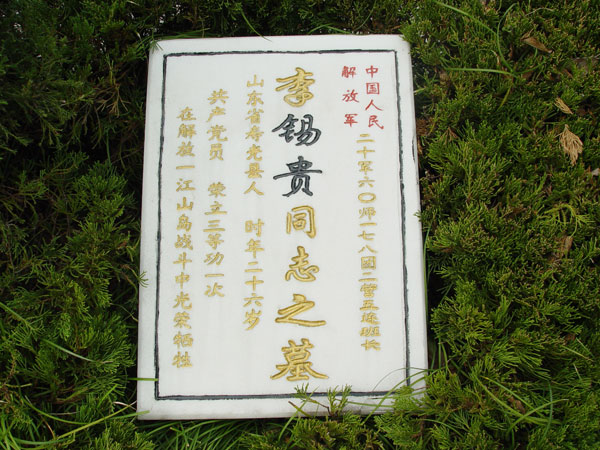 中国人民
解放军
二十军六〇师一七八团二营五连班长
李锡贵同志之墓
山东省寿光县人 时年二十六岁
共产党员 荣立三等功一次
在解放一江山岛战斗中光荣牺牲